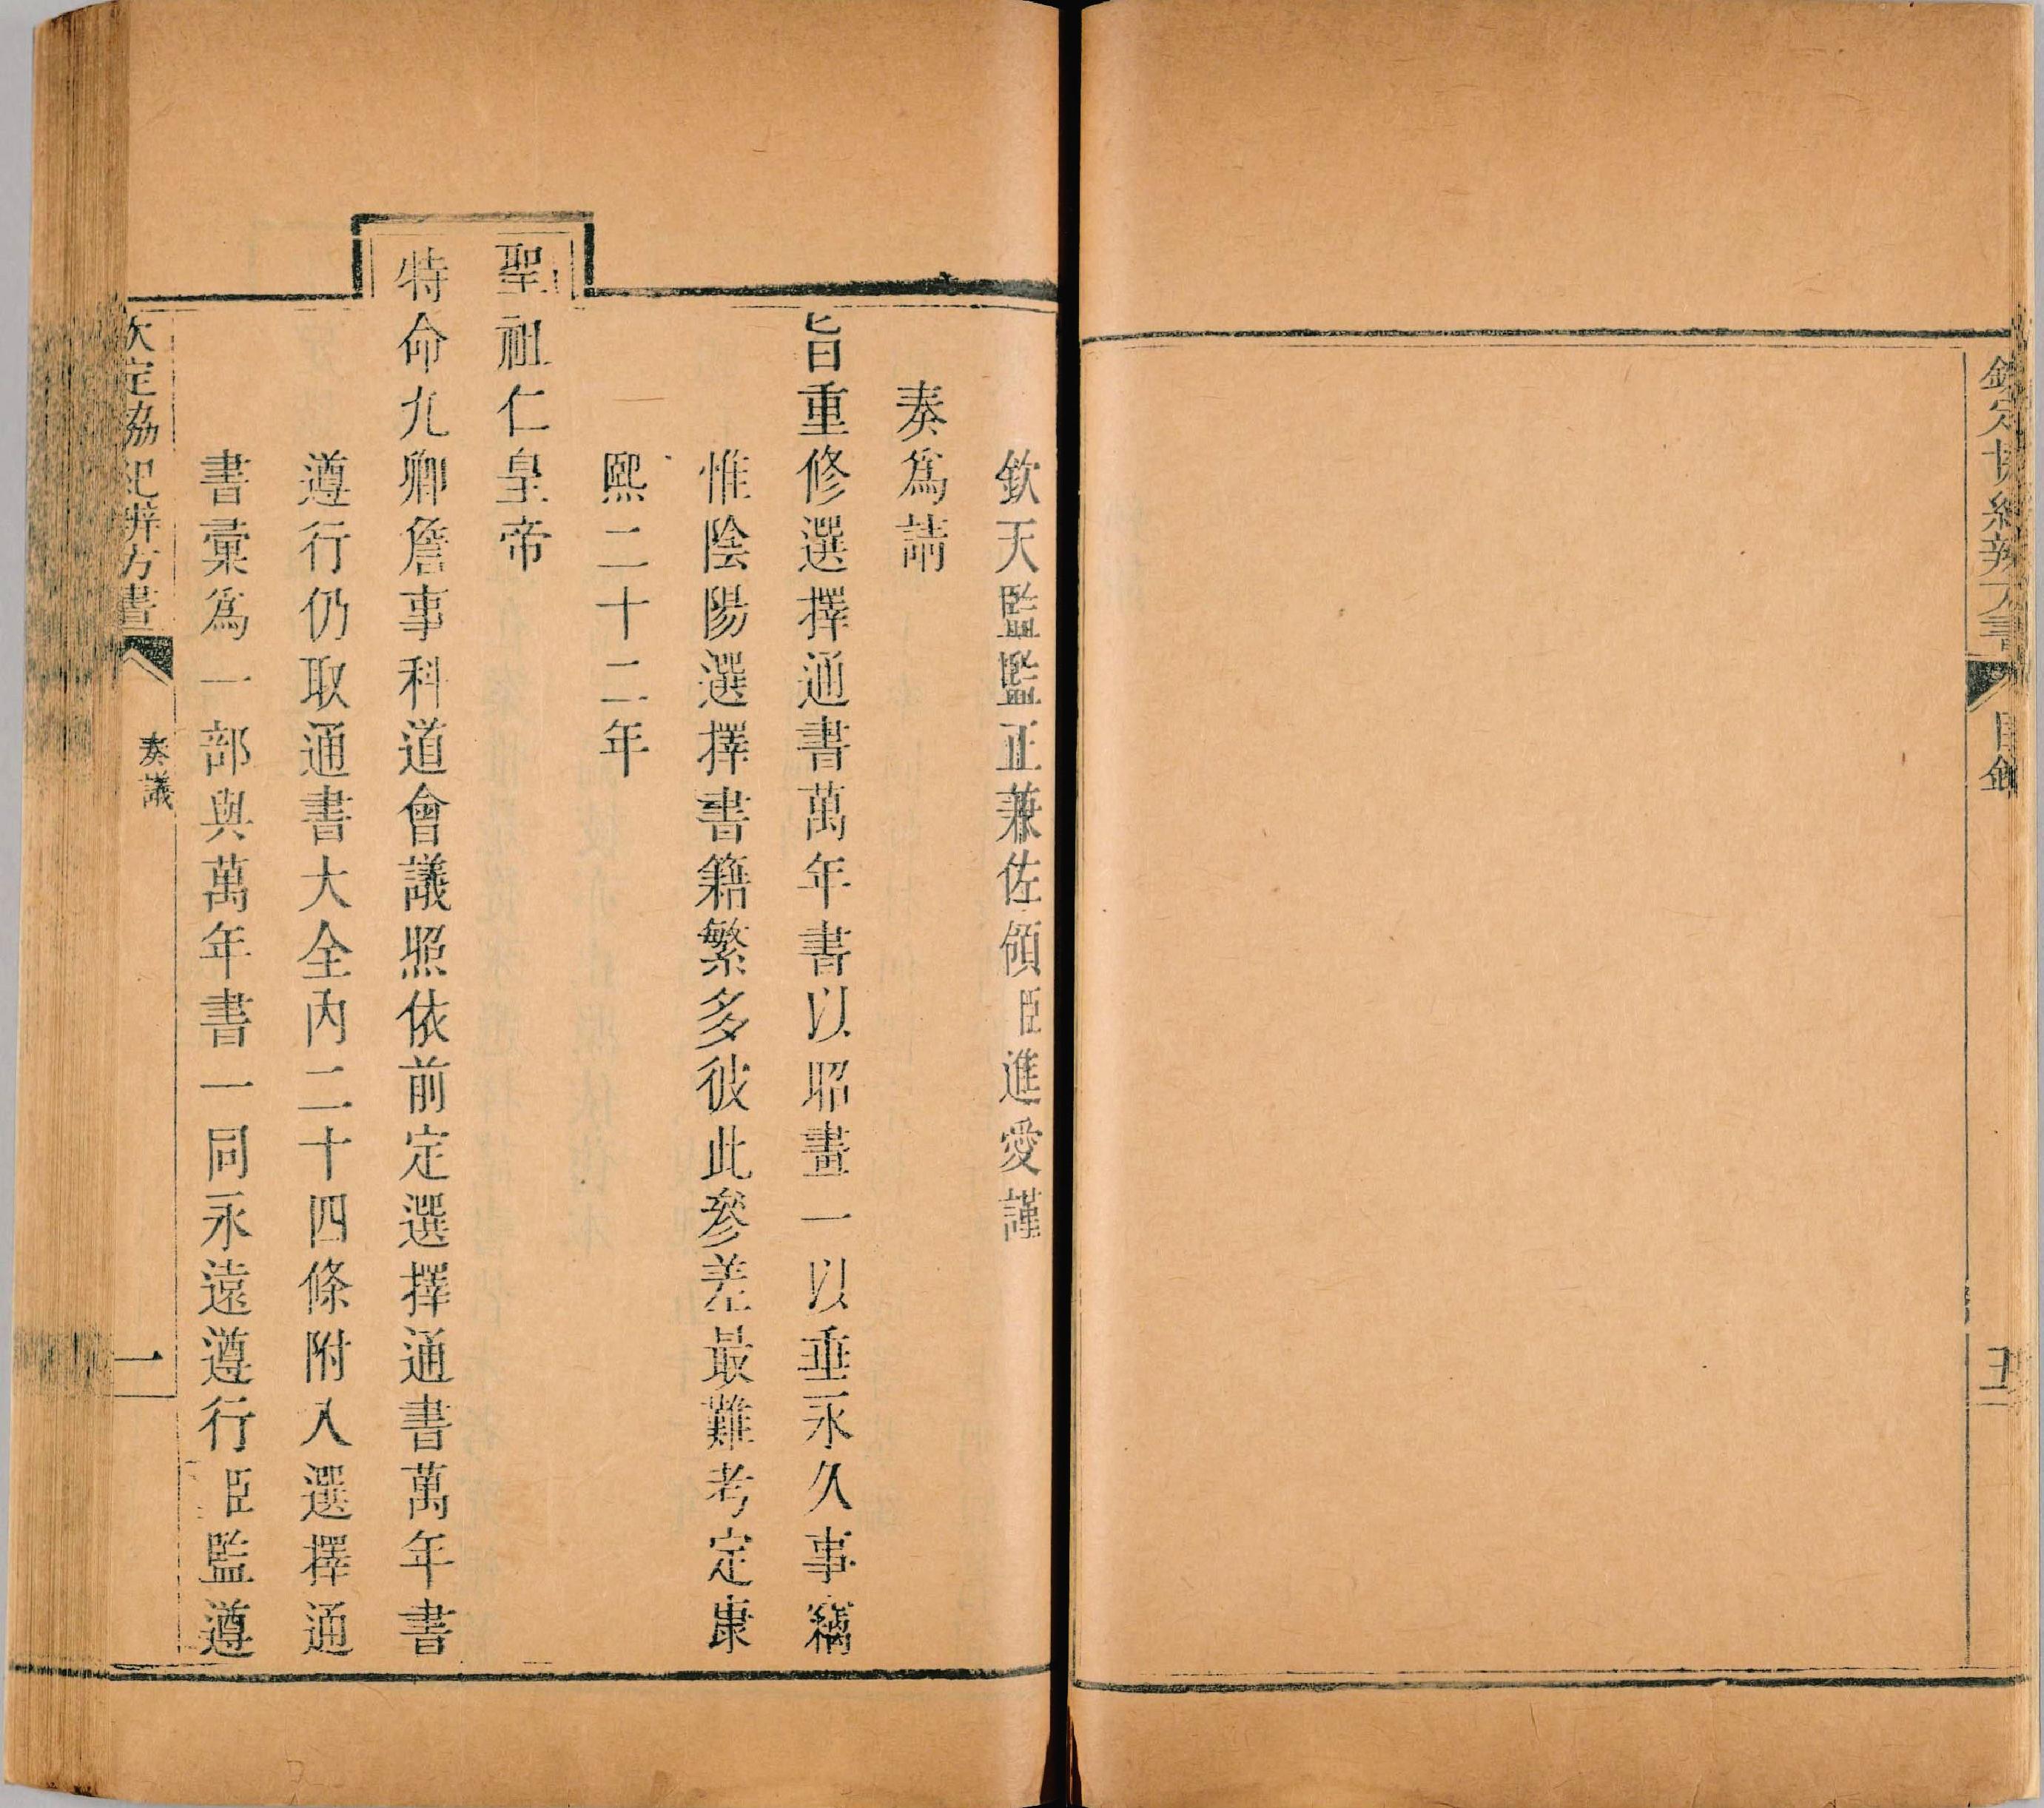 目錄
欽天監監正兼佐領臣進愛謹
奏為請
旨重修選擇通書萬年書以昭畫一以垂永久事竊
惟陰陽選擇書籍繁多彼此參差最難考定康
熙二十二年
聖祖仁皇帝
特命九卿詹事科道會議照依前定選擇通書萬年書
遵行仍取通書大全內二十四條附入選擇通
書彙為一部與萬年書一同永遠遵行臣監遵
欽定協紀辨方書
奏議
一